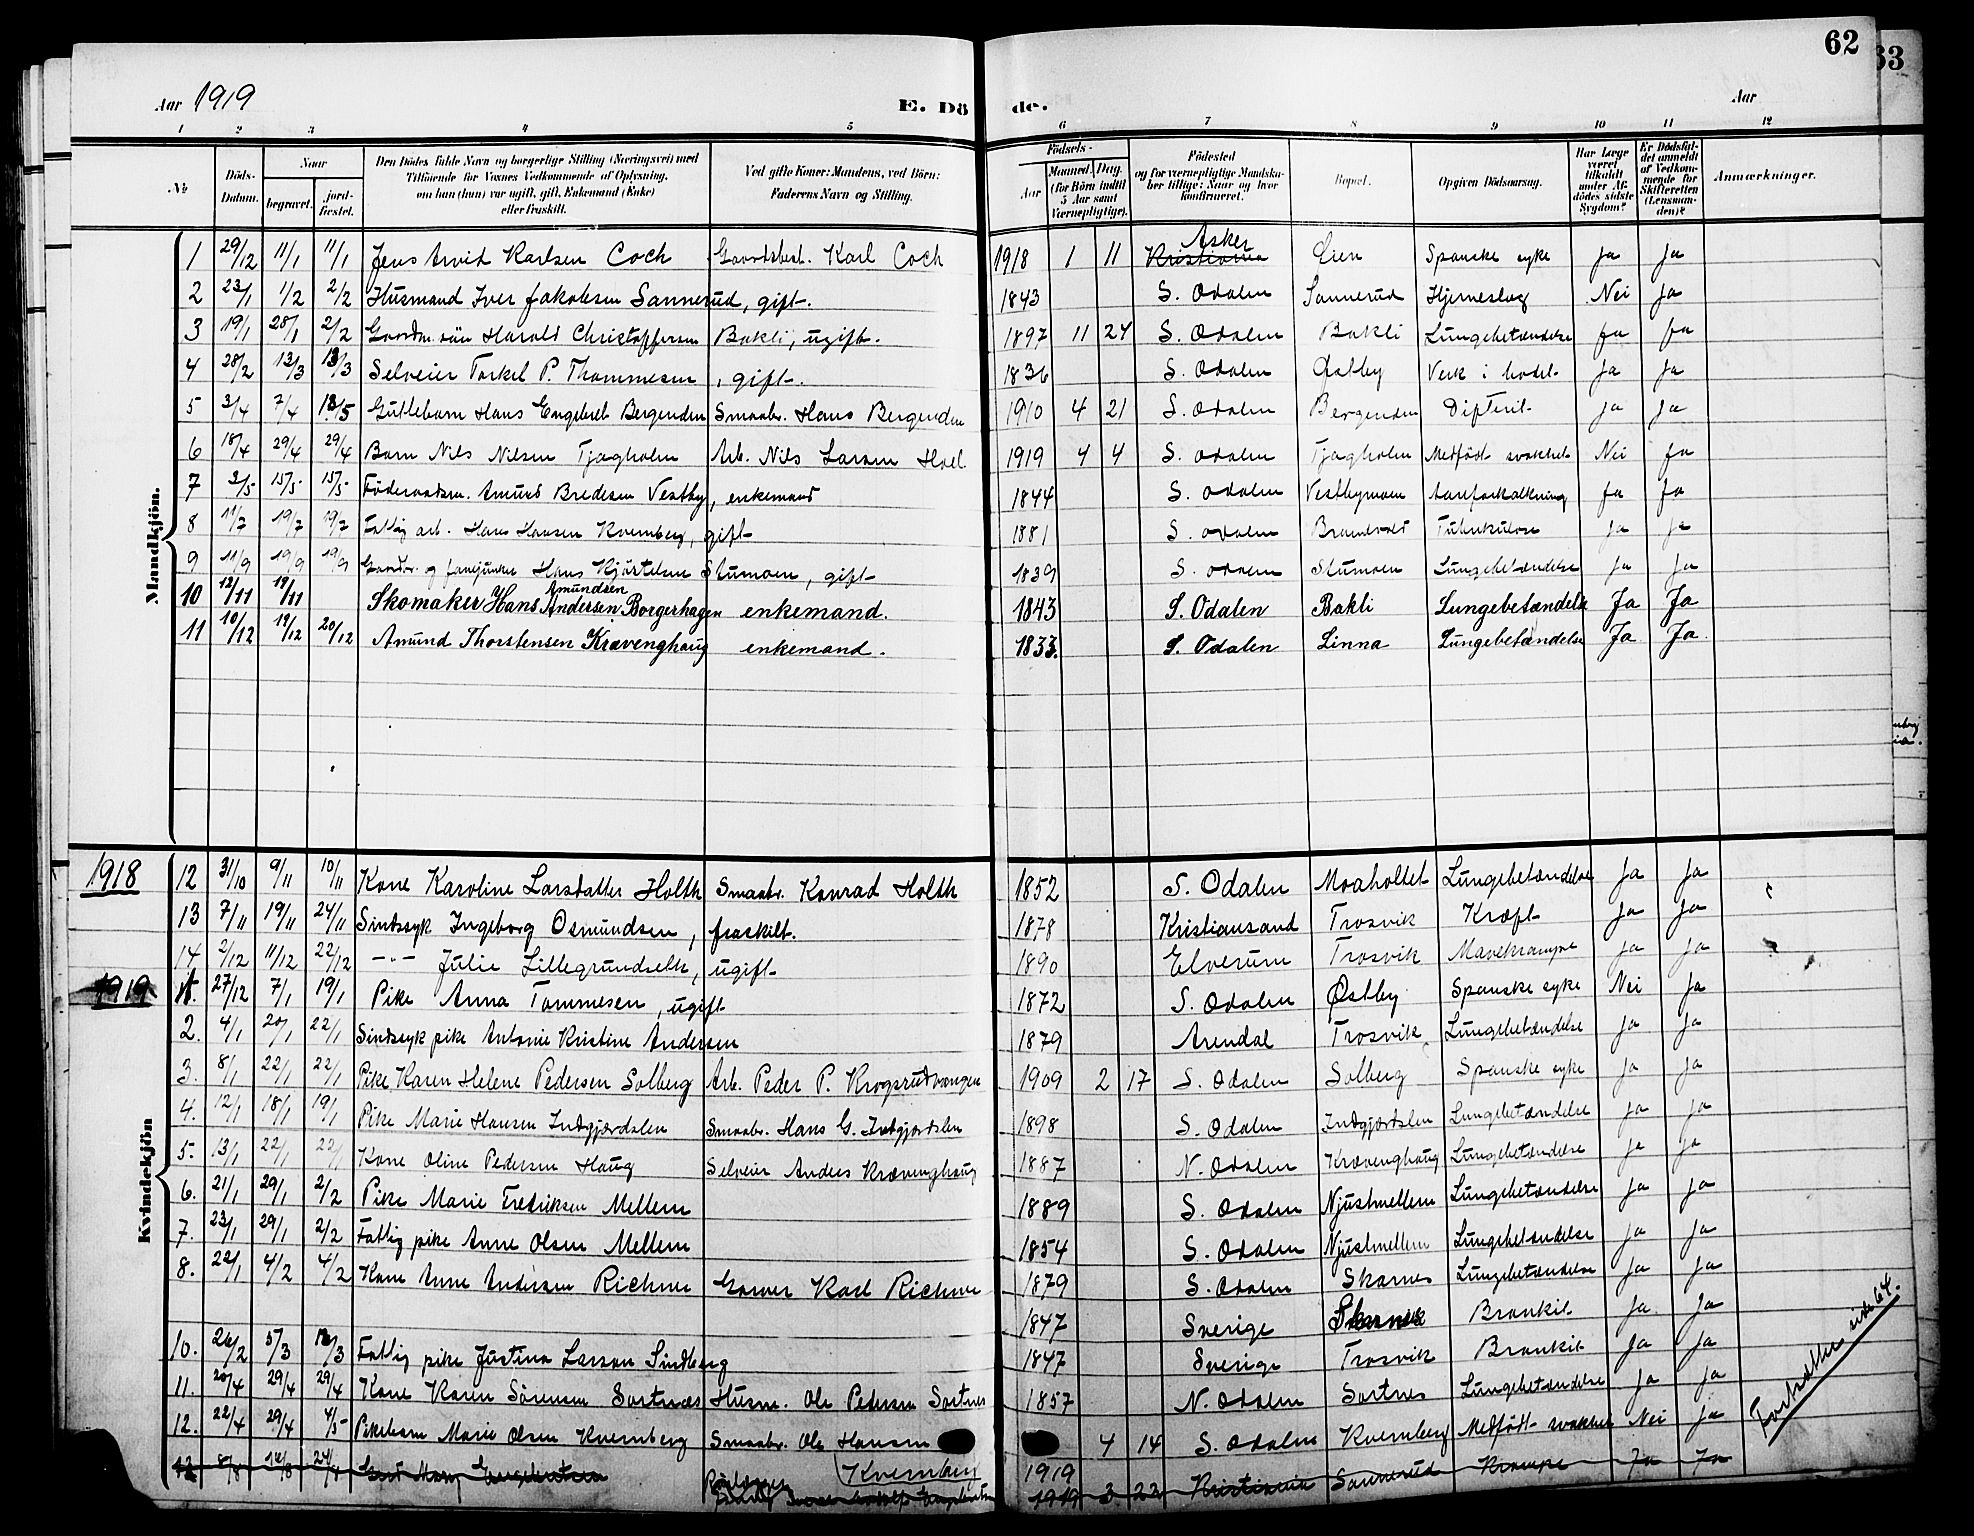 62
63
Aar 1919
E. Dö de.
Aar
1 2 3 4 5 6 7 8 9 10 11 12
№ Döds-Datum. Naar begravet. jord-fæstet. Den Dödes fulde Navn og borgerlige Stilling (Næringsvei) med Tilföiende for Voxnes Vedkommende af Oplysning, om han (hun) var ugift, gift, Enkemand (Enke) eller fraskilt. Ved gifte Koner: Mandens, ved Börn: Faderens Navn og Stilling. Födsels- Aar Maaned. Dag. (for Börn indtil 5 Aar samt Værnepligtige). Födested og for værnepligtige Mandskaber tillige: Naar og hvor konfirmeret. Bopæl. Opgiven Dödsaarsag. Har Læge været tilkaldt under Afdödes sidste Sygdom? Er Dödsfaldet anmeldt af Vedkommende for Skifteretten (Lensmanden)? Anmærkninger.
Mandkjön.
1 29/12 11/1 11/1 Jens Arvid Karlsen Coch Gaardsbest. Karl Coch 1918 1 11 Asker Kristiania Lien Spanske syke Ja Ja
2 23/1 1/2 2/2 Husmand Iver Jakobsen Sannerud, gift. 1843 S. Odalen Sannerud Hjerneslag Nei Ja
3 19/1 28/1 2/2 Gaardm. sön Harald Christoffersen Bakli, ugift. 1897 11 24 S. Odalen Bakli Lungebetændelse Ja Ja
4 28/2 13/3 13/3 Selveier Torkel P. Thommesen, gift. 1836 S. Odalen Østby Verk i hodet Ja Ja
5 3/4 7/4 18/5 Guttebarn Hans Engebret Bergenden Smaabr. Hans Bergenden 1910 4 21 S. Odalen Bergenden Difterit Ja Ja
6 18/4 29/4 29/4 Barn Nils Nilsen Tjagholm Arb. Nils Larsen Hoel 1919 4 4 S. Odalen Tjagholm Medfödt svakhet Nei Ja
7 2/5 15/5 15/5 Föderaadsm. Amund Bredesen Vestby, enkemand 1844 S. Odalen Vestbymoen Aareforkalkning Ja Ja
8 11/7 19/7 19/7 Fattig arb. Hans Hansen Kvernberg, gift 1881 S. Odalen Brandvold Tuberkulose Ja Ja
9 11/9 19/9 19/9 Gaardbr. og fanejunker Hans Kjöstelsen Stumoen, gift 1839 S. Odalen Stumoen Lungebetændelse Ja Ja
10 12/11 19/11 Skomaker Hans Amundsen Andersen Borgerhagen enkemand. 1843 S. Odalen Bakli Lungebetændelse Ja Ja
11 10/12 19/12 20/12 Amund Thorstensen Krævenghaug enkemand. 1833. S. Odalen Linna Lungebetændelse Ja Ja
Kvindekjön
1918 12 31/10 9/11 10/11 Kone Karoline Larsdatter Holth Smaabr. Konrad Holth 1852 S. Odalen Moaholtet Lungebetændelse Ja Ja
13 7/11 19/11 24/11 Sindssyk Ingeborg Osmundsen, fraskilt. 1878 Kristiansand Trosvik Kræft Ja Ja
14 2/12 11/12 22/12 -"- Julie Lillegrundseth, ugift 1890 Elverum Trosvik Mavekrampe Ja Ja
1919 27/12 7/1 19/1 Pike Anna Tommesen, ugift 1872 S. Odalen Østby Spanske syke Nei Ja
2. 4/1 20/1 22/1 Sindssyk pike Antonie Kristine Andersen 1879 Arendal Trosvik Lungebetændelse Ja Ja
3. 8/1 22/1 22/1 Pike Karen Helene Pedersen Solberg Arb. Peder P. Krogsrudvangen 1909 2 17 S. Odalen Solberg Spanske syke Ja Ja
4. 12/1 18/1 19/1 Pike Marie Hansen Indgjærdalen Smaabr. Hans G. Indgjærdalen 1898 S. Odalen Indgjærdalen Lungebetændelse Ja Ja
5. 13/1 22/1 22/1 Kone Oline Pedersen Haug Selveier Anders Krævenghaug 1887 N. Odalen Krævenghaug Lungebetændelse Ja Ja
6. 21/1 29/1 2/2 Pike Marie Fredriksen Mellem 1889 S. Odalen Njustmellem Lungebetændelse Ja Ja
7. 23/1 29/1 2/2 Fattig pike Anne Olsen Mellem 1854 S. Odalen Njustmellem Lungebetændelse Ja Ja
8. 22/1 4/2 4/2 Kone Anne Andersen Richne Garver Karl Richne 1879 S. Odalen Skarnes Lungebetændelse Ja Ja
1847 Sverige Bronkit Ja Ja
10. 26/2 5/3 13/3 Fattig pike Justina Larson Sindberg 1847 Sverige Trosvik Bronkit Ja Ja
11. 20/4 29/4 29/4 Kone Karen Sörensen Sortnæs Husm. Ole Pedersen Sortnes 1857 N. Odalen Sortnes Lungebetændelse Ja Ja
12. 22/4 29/4 4/5 Pikebarn Marie Olsen Kvernberg Smaabr. Ole Hansen Kvernberg 1919 4 14 S. Odalen Kvernberg Medfödt svakhet Nei Ja
8/8 14/8 24/8 1919 3 22 Kristiania Sannerud Krampe Ja Ja
Fortsættes side 64.